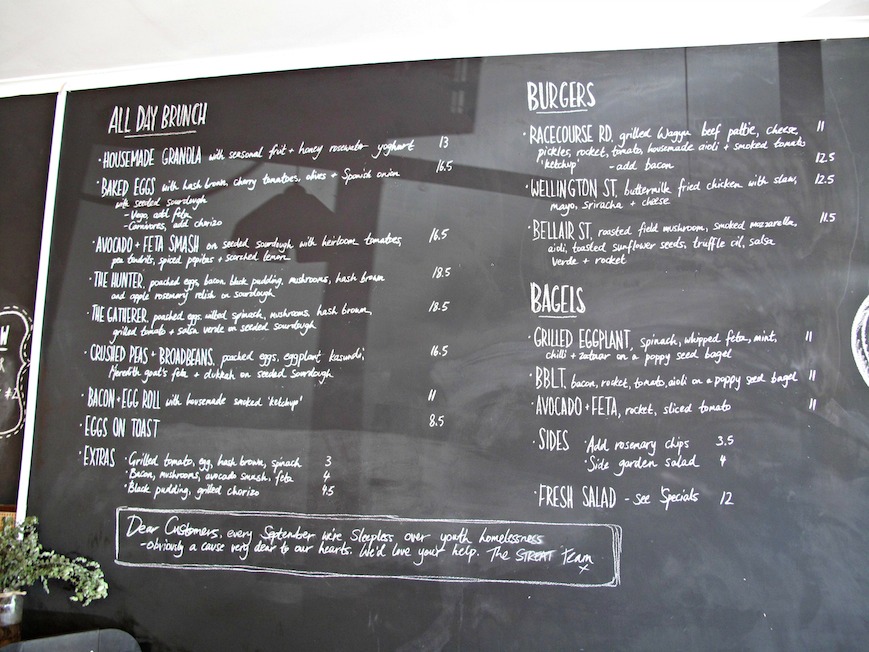 ALL DAY BRUNCH
· HOUSEMADE GRANOLA with seasonal fruit + honey rosewater yoghurt 13
· BAKED EGGS with hash brown, cherry tomatoes, olives + Spanish onion 16.5
with seeded sourdough
- Vego, add feta
- Carnivores, add chorizo
· AVOCADO + FETA SMASH on seeded sourdough with heirloom tomatoes, 16.5
pea tendrils, spiced pepitas + scorched lemon
· THE HUNTER, poached eggs, bacon, black pudding, mushrooms, hash brown 18.5
and apple rosemary relish on sourdough
· THE GATHERER, poached eggs, wilted spinach, mushrooms, hash brown, 18.5
grilled tomato + salsa verde on seeded sourdough
· CRUSHED PEAS + BROADBEANS, poached eggs, eggplant kasundi, 16.5
Meredith goat's feta + dukkah on seeded sourdough
· BACON + EGG ROLL with housemade smoked 'ketchup' 11
· EGGS ON TOAST 8.5
· EXTRAS · Grilled tomato, egg, hash brown, spinach 3
· Bacon, mushrooms, avocado smash, feta 4
· Black pudding, grilled chorizo 4.5
BURGERS
· RACECOURSE RD, grilled Wagyu beef pattie, cheese, 11
pickles, rocket, tomato, housemade aioli + smoked tomato
'ketchup' - add bacon 12.5
· WELLINGTON ST, buttermilk fried chicken with slaw, 12.5
mayo, sriracha + cheese
· BELLAIR ST, roasted field mushroom, smoked mozzarella, 11.5
aioli, toasted sunflower seeds, truffle oil, salsa
verde + rocket
BAGELS
· GRILLED EGGPLANT, spinach, whipped feta, mint, 11
chilli + zataar on a poppy seed bagel
· BBLT, bacon, rocket, tomato, aioli on a poppy seed bagel 11
· AVOCADO + FETA, rocket, sliced tomato 11
· SIDES · Add rosemary chips 3.5
· Side garden salad 4
· FRESH SALAD - see Specials 12
Dear Customers, every September we're Sleepless over youth homelessness
- Obviously a cause very dear to our hearts. We'd love your help. The STREAT Team
x